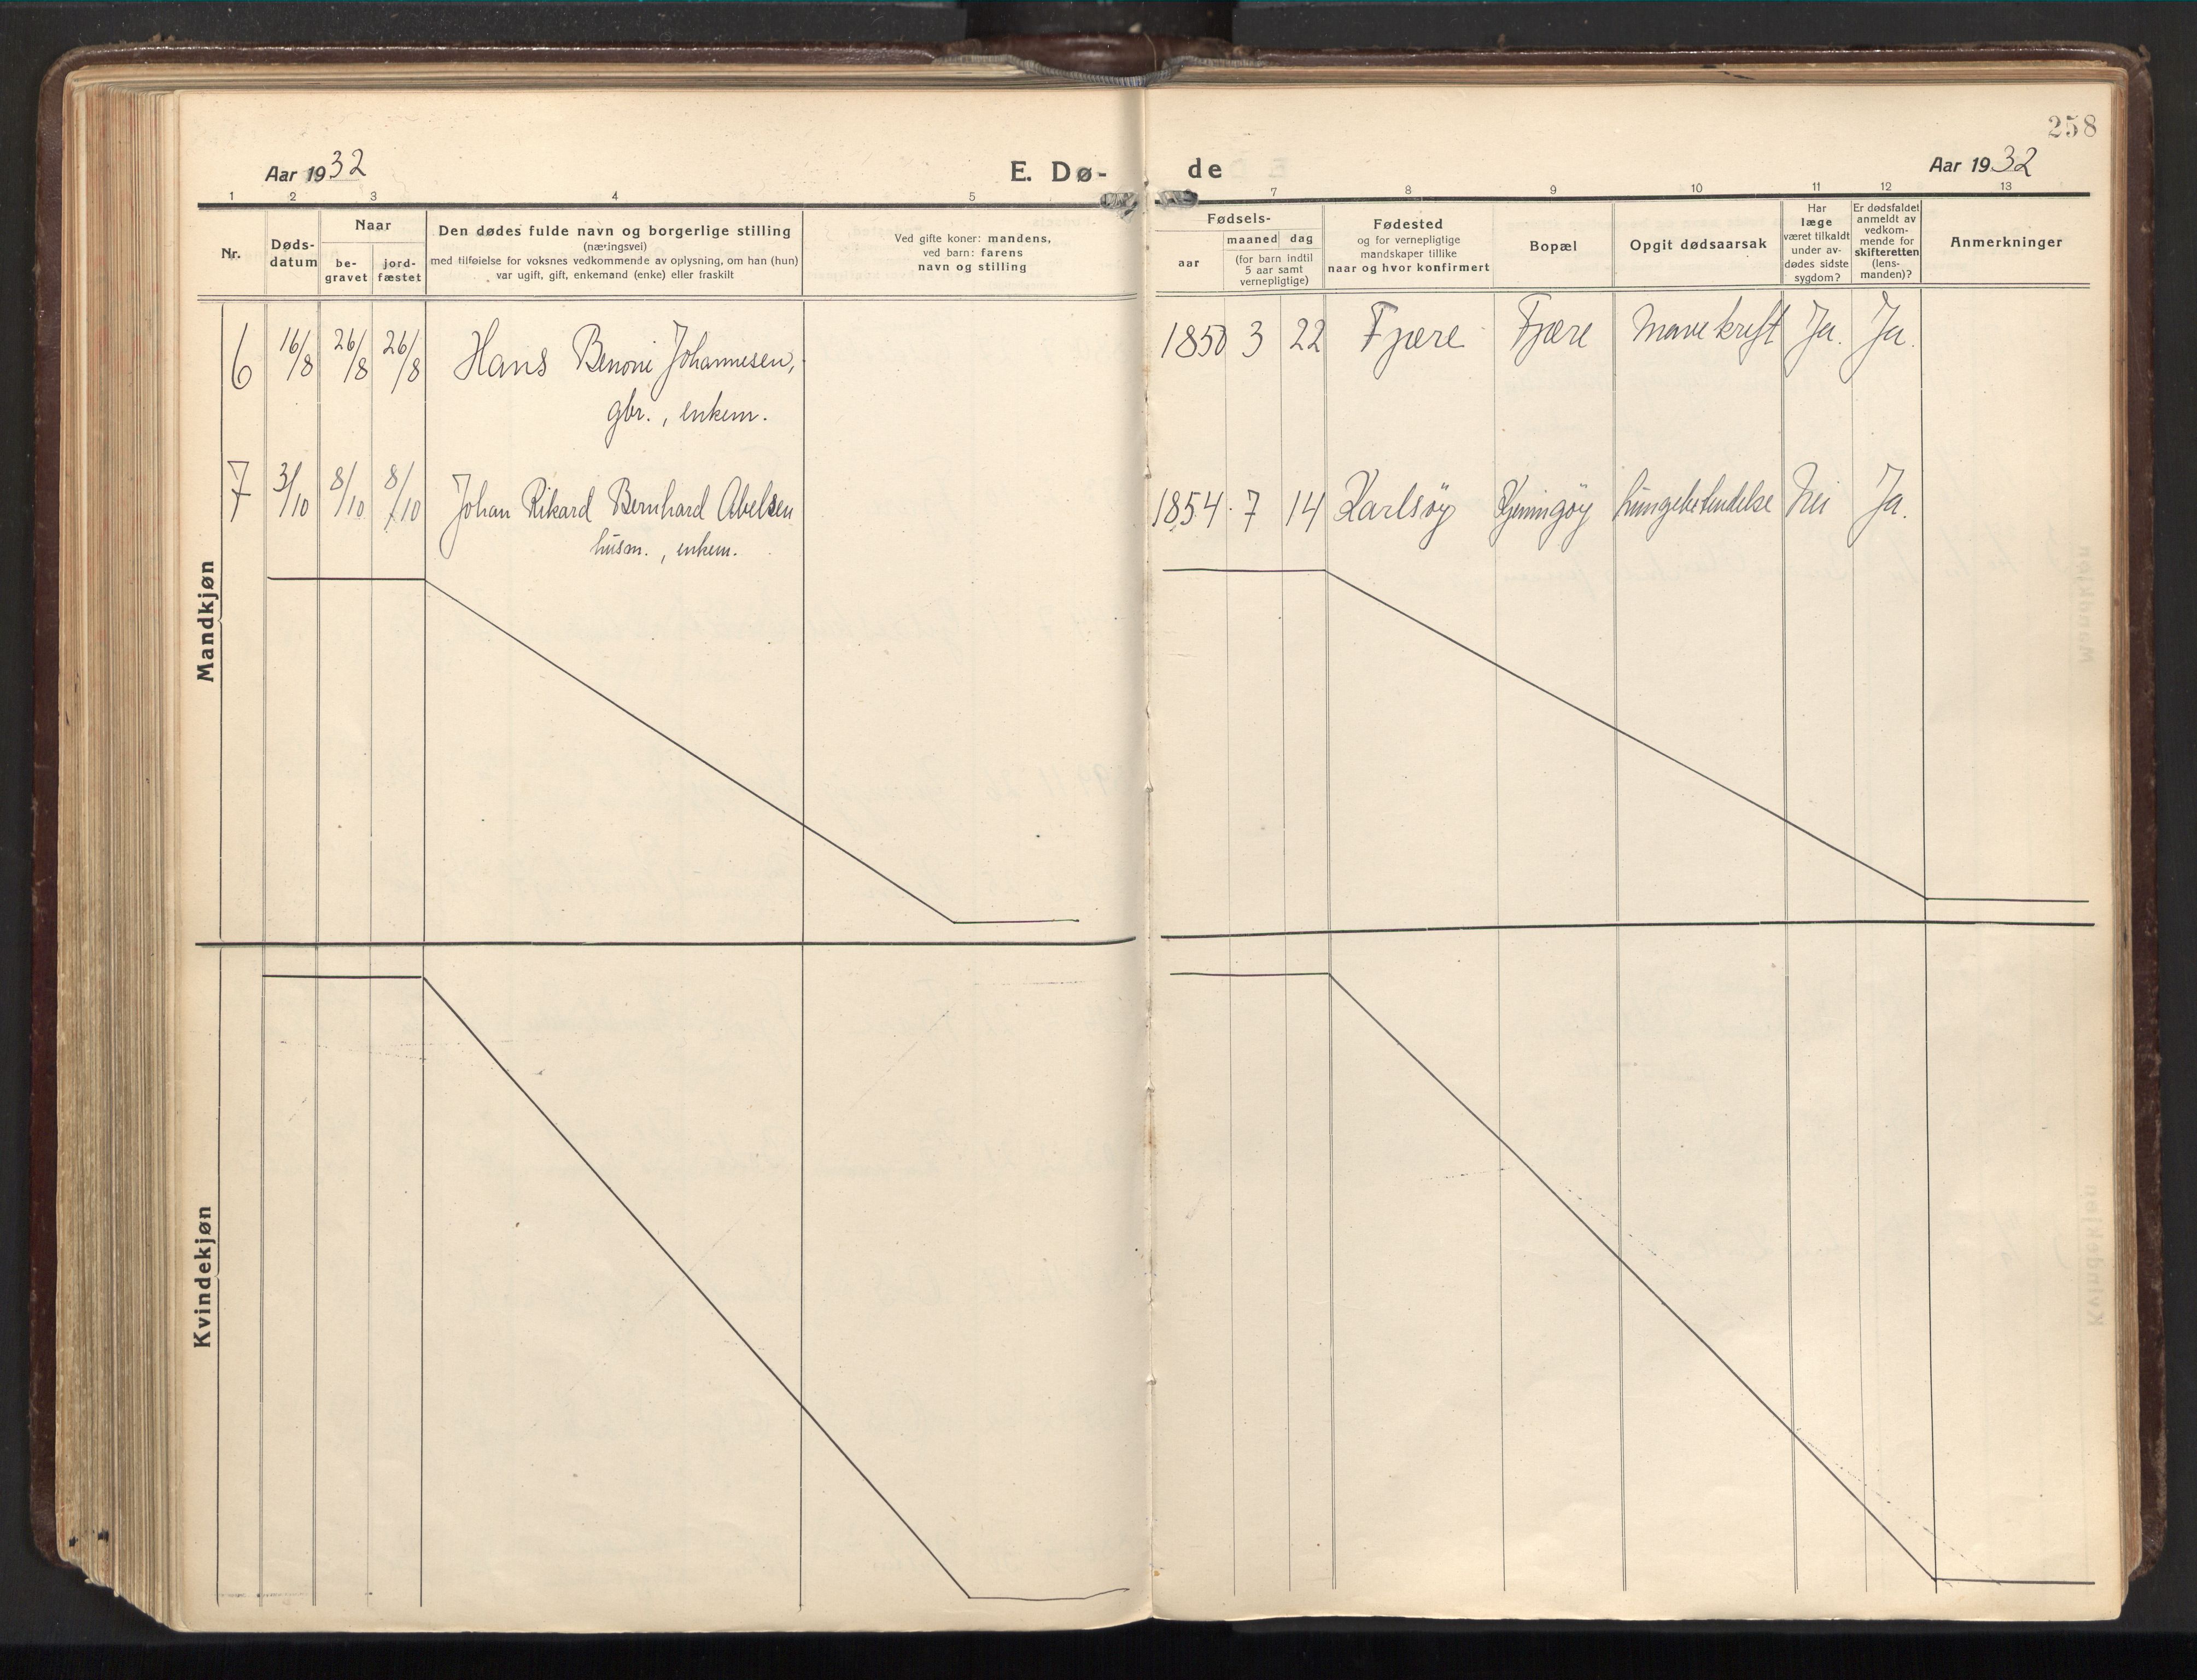 258
Aar 1932
E. Dø-
de
Aar 1932
1 2 3 4 5 7 8 9 10 11 12 13
Nr.
Døds-
datum
Naar
be-
gravet
jord-
fæstet
Den dødes fulde navn og borgerlige stilling
(næringsvei)
med tilføielse for voksnes vedkommende av oplysning, om han (hun)
var ugift, gift, enkemand (enke) eller fraskilt
Ved gifte koner: mandens,
ved barn: farens
navn og stilling
Fødsels-
aar
maaned dag
(for barn indtil
5 aar samt
vernepligtige)
Fødested
og for vernepligtige
mandskaper tillike
naar og hvor konfirmert
Bopæl
Opgit dødsaarsak
Har
læge
været tilkaldt
under av-
dødes sidste
sygdom?
Er dødsfaldet
anmeldt av
vedkom-
mende for
skifteretten
(lens-
manden)?
Anmerkninger
Mandkjøn
6 16/8 26/8 26/8 Hans Benoni Johannesen, 1850 3 22 Fjære Fjære Mavekreft Ja. Ja.
gbr., enkem.
7 3/10 8/10 8/10 Johan Rikard Bernhard Abelsen 1854 7 14 Karlsöy Gjömöy lungebetendelse Nei Ja.
husm., enkem.
Kvindekjøn